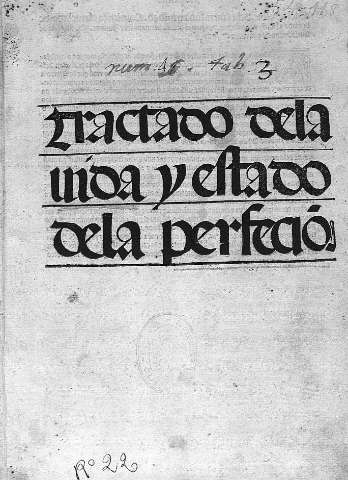 num 45. tab 3
Tractado dela
uida y estado
dela perfeció.
Nº 22